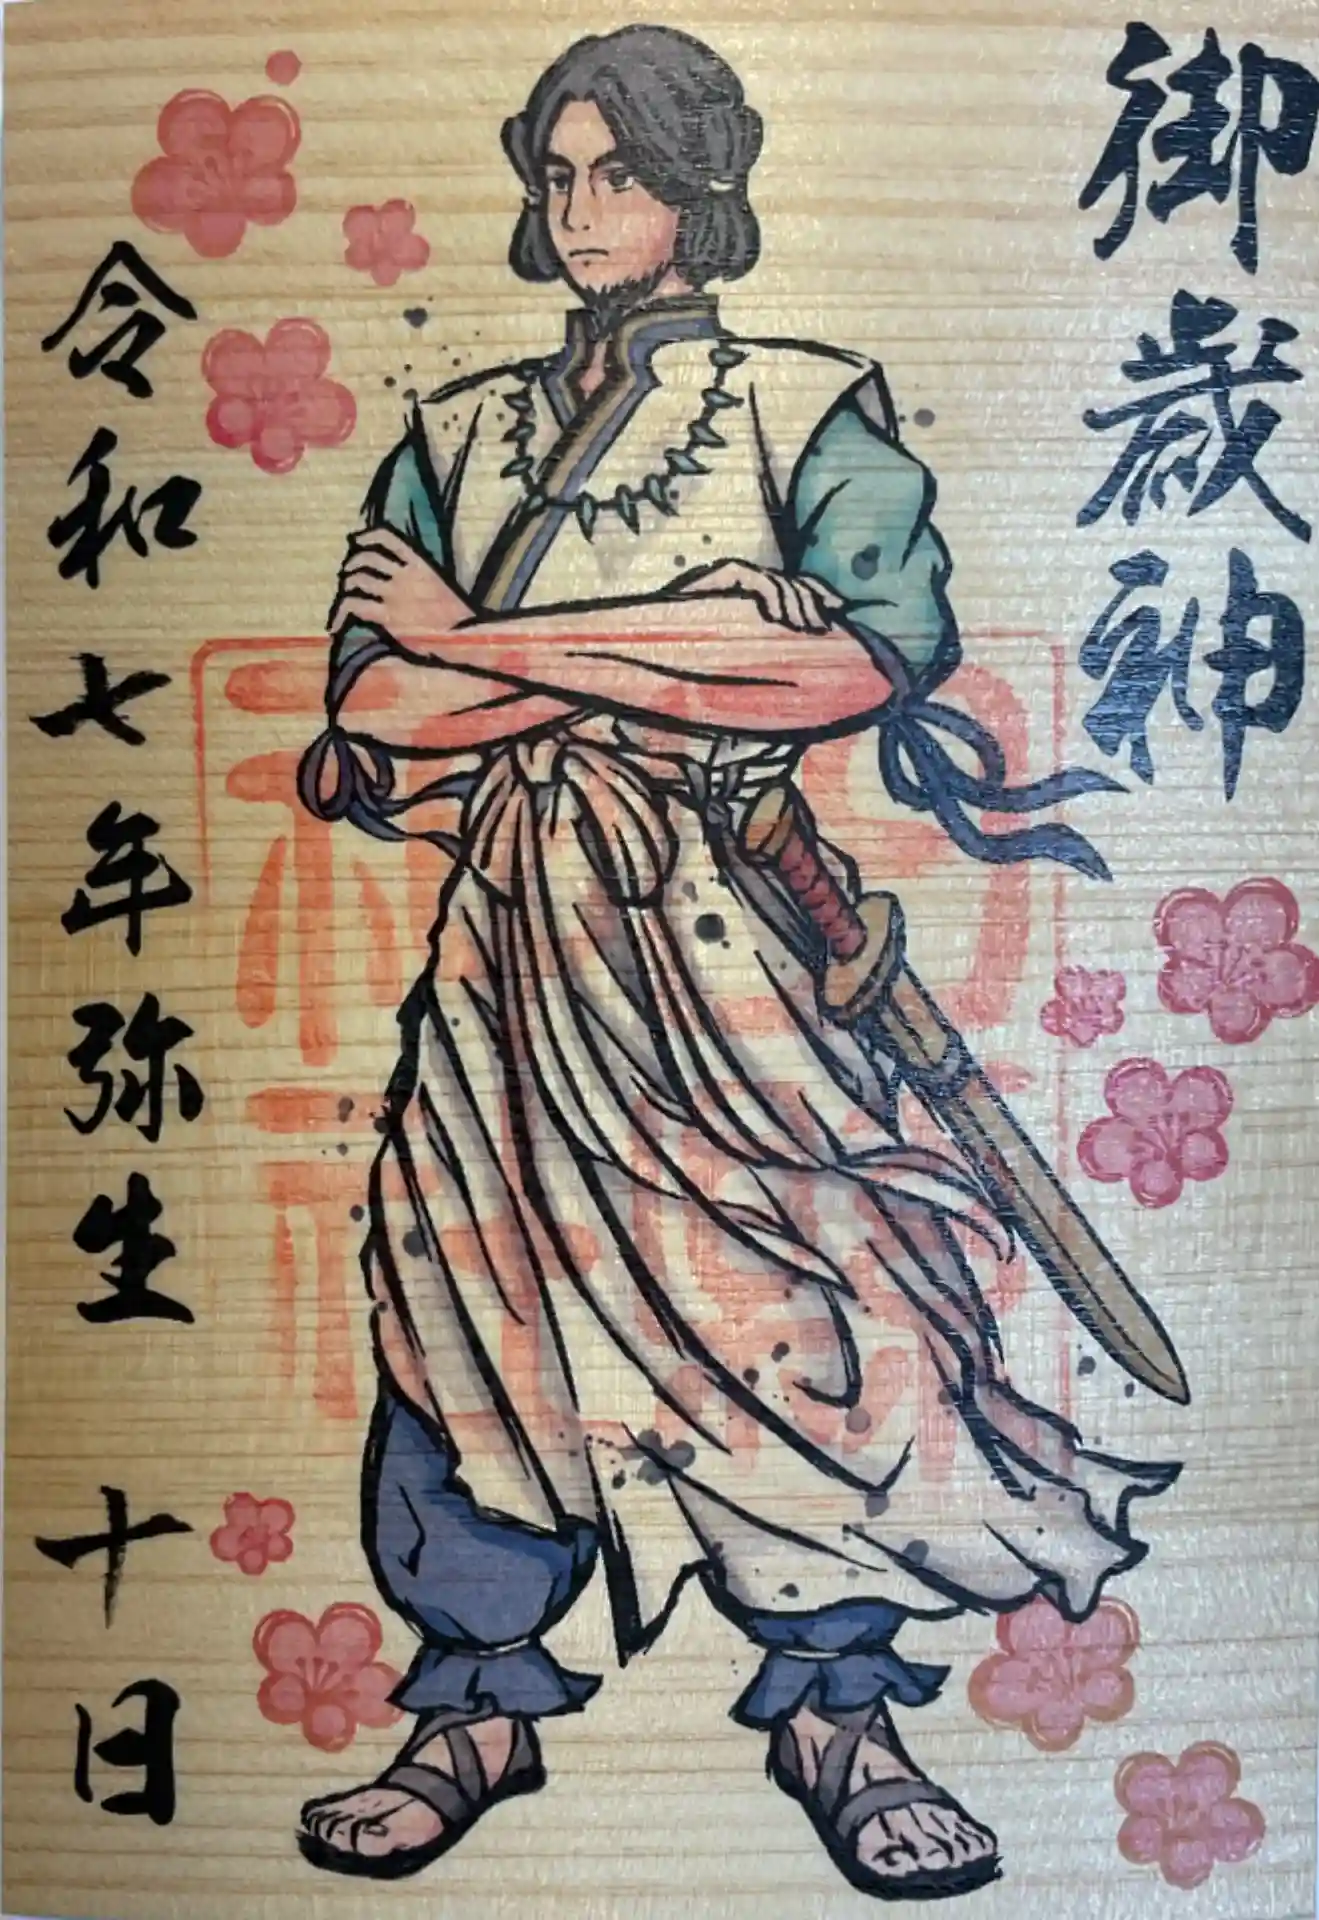 御歳神
令和七年弥生十日